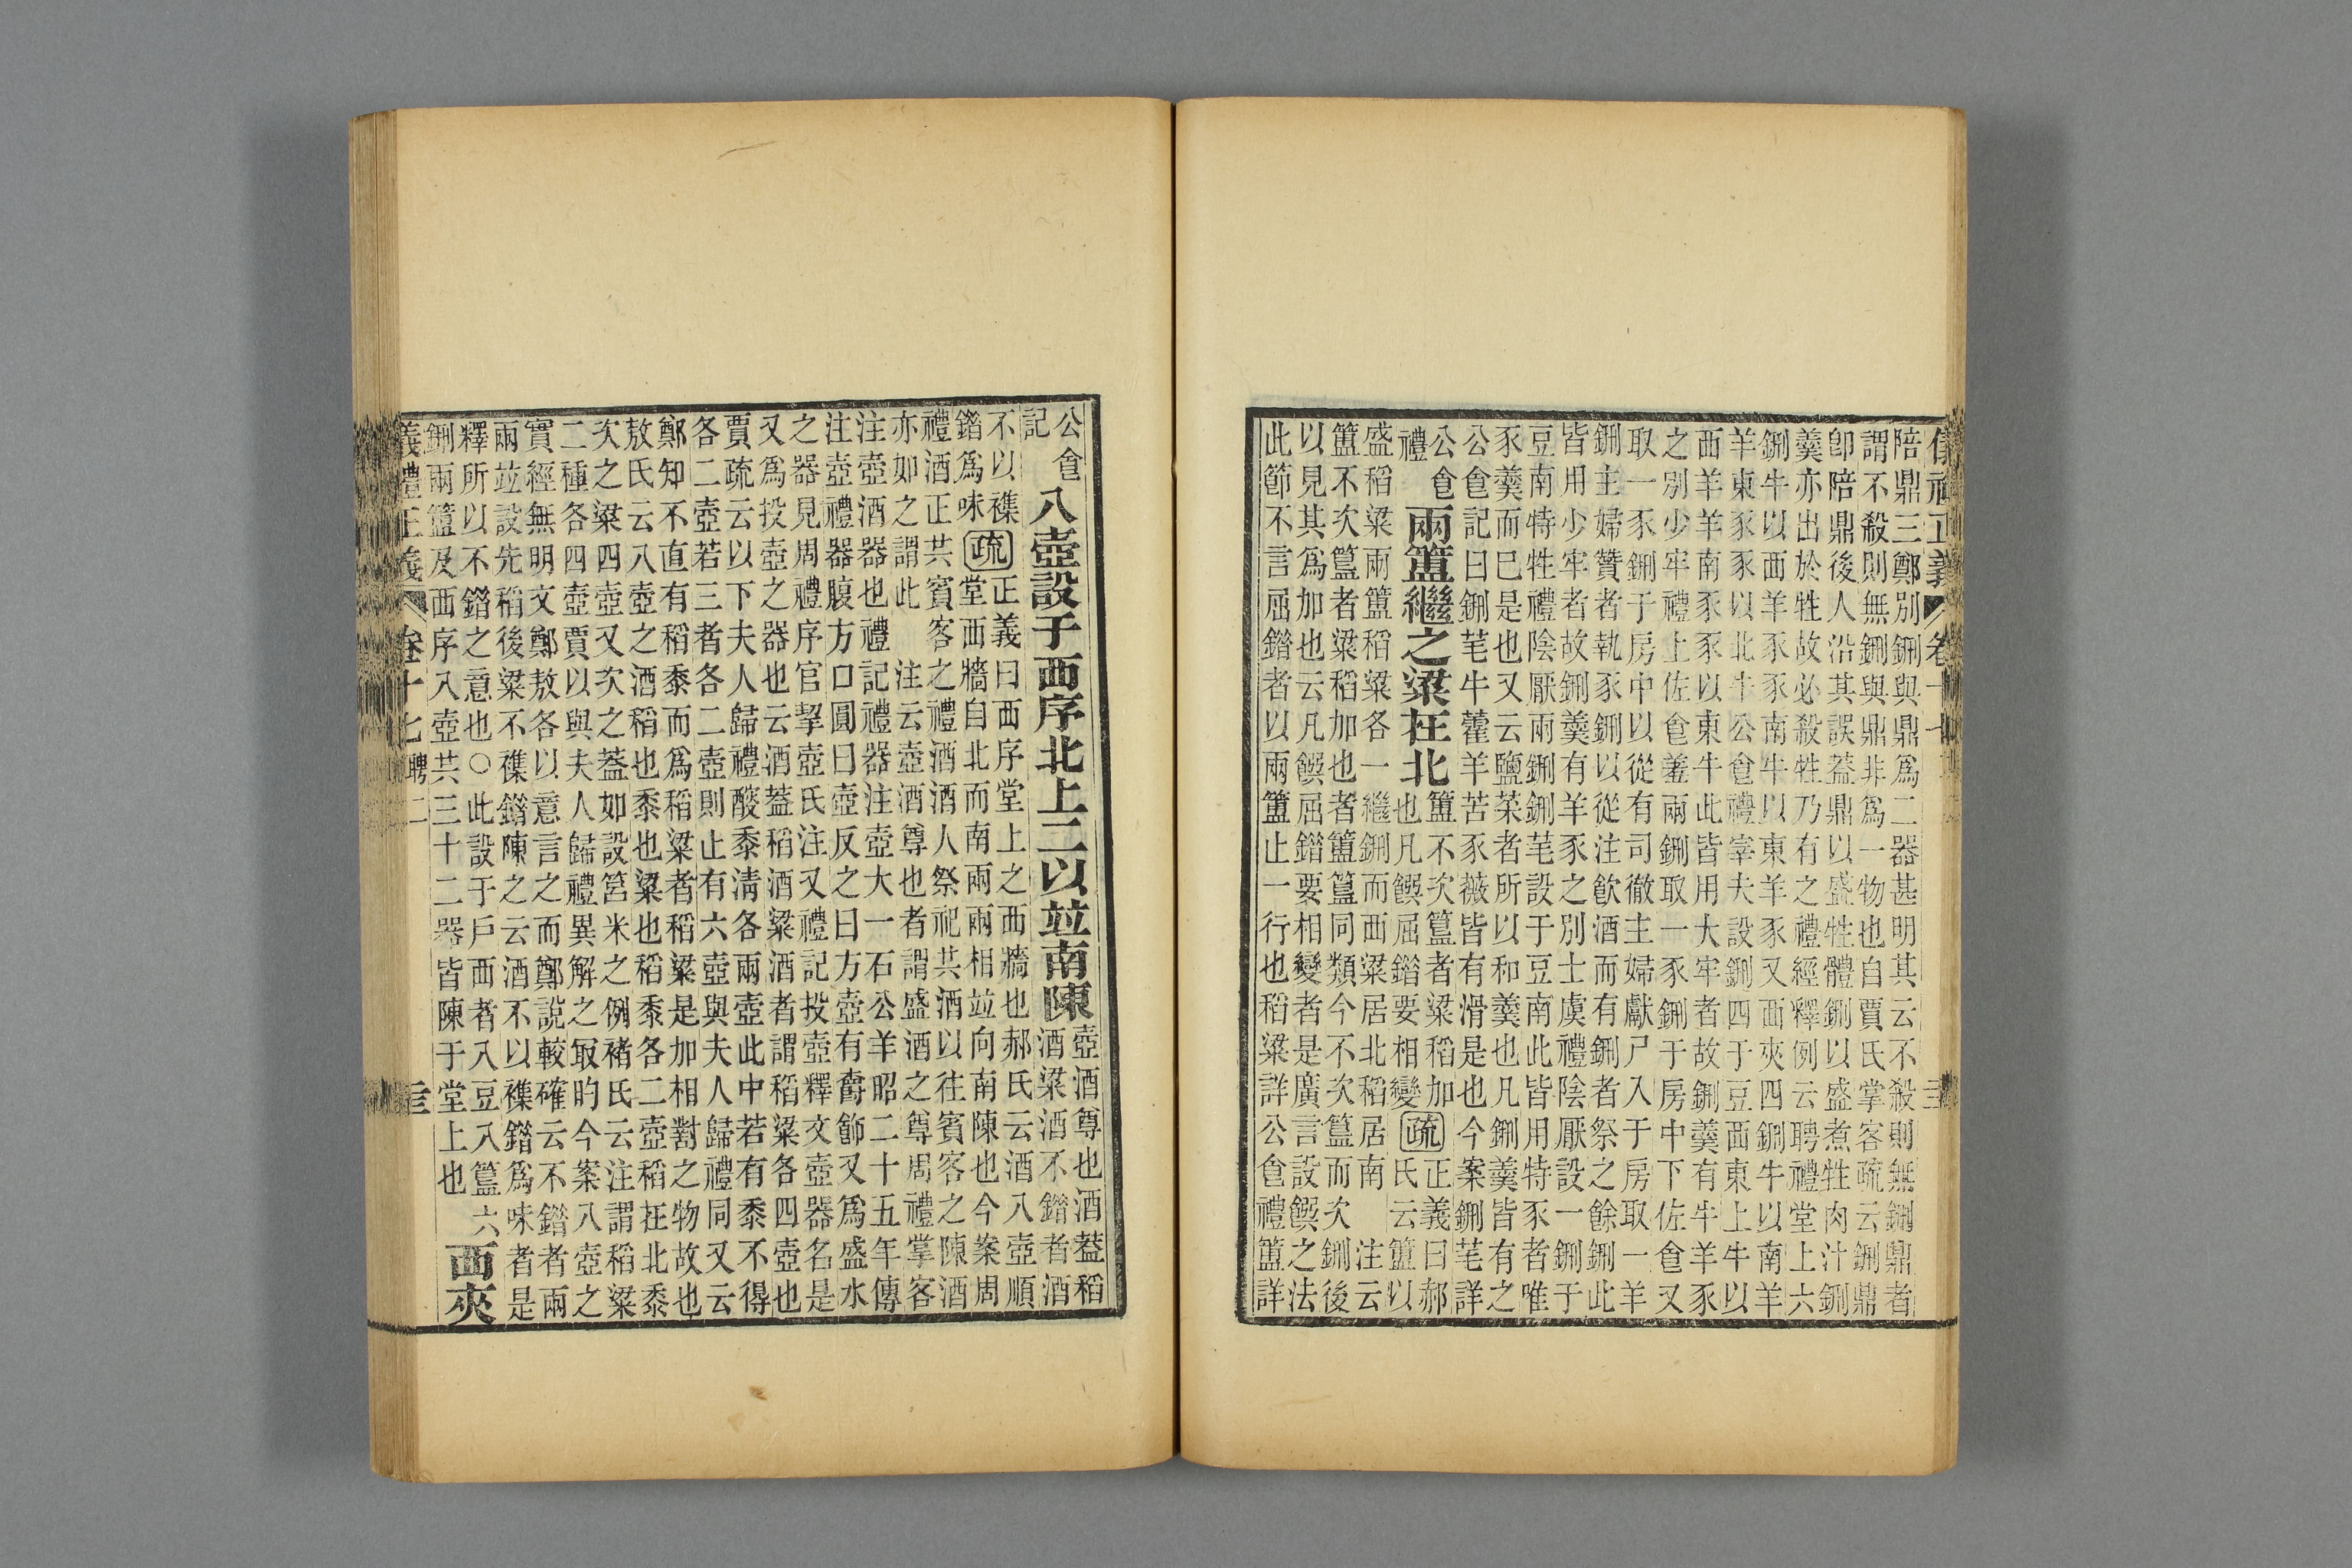 儀禮正義 卷十七
陪鼎三鄭別鉶與鼎爲二器甚明其云不殺則無鉶鼎者
謂不殺則無鉶與鼎非爲一物也自賈氏掌客疏云鉶鼎
卽陪鼎後人沿其誤葢鼎以盛牲體鉶以盛煮牲肉汁鉶
羹亦出於牲故必殺牲乃有之禮經釋例云聘禮堂上六
鉶牛以西羊豕豕南牛以東羊豕又西夾四鉶牛以南羊
羊東豕豕以北牛公㑹禮宰夫設鉶四于豆西東上牛以
西羊羊南豕豕以東牛此皆用大牢者故鉶羹有牛羊豕
之別少牢禮上佐㑹羞兩鉶取一豕鉶于房中下佐㑹又
取一豕鉶于房中以從有司徹主婦獻尸入于房取一羊
鉶主婦贊者執豕鉶以從注飮酒而有鉶者祭之餘鉶此
皆用少牢者故鉶羹有羊豕之別士虞禮陰厭設一鉶于
豆南特牲禮陰厭兩鉶鉶芼設于豆南此皆用特豕者唯
豕羹而巳是也又云鹽菜者所以和羹也凡鉶羹皆有之
公㑹記曰鉶芼牛藿羊苦豕薇皆有滑是也今案鉶芼詳
公㑹禮
兩簠繼之粱在北
簠不次簋者粱稻加也凡饌屈錯要相變
疏
正義曰郝氏云簠以
盛稻粱兩簠稻粱各一繼鉶而西粱居北稻居南 注云
簠不次簋者粱稻加也者簠簋同類今不次簋而次鉶後
以見其爲加也云凡饌屈錯要相變者是廣言設饌之法
此節不言屈錯者以兩簠止一行也稻粱詳公㑹禮簠詳
公㑹記
八壺設于西序北上二以竝南陳
壺酒尊也酒葢稻酒粱酒不錯者酒
不以襍錯爲味
疏
正義曰西序堂上之西牆也郝氏云酒八壺順
堂西牆自北而南兩兩相竝向南陳也今案周
禮酒正共賓客之禮酒酒人祭祀共酒以往賓客之陳酒
亦如之謂此 注云壺酒尊也者謂盛酒之尊周禮掌客
注壺酒器也禮記禮器注壺大一石公羊昭二十五年傳
注壺禮器腹方口圓曰壺反之曰方壺有爵飾又爲盛水
之器見周禮序官挈壺氏注又禮記投壺釋文壺器名是
又爲投壺之器也云酒葢稻酒粱酒者謂稻粱各四壺也
賈疏云以下夫人歸禮醙黍清各兩壺此中若有黍不得
各二壺若三者各二壺則止有六壺與夫人歸禮同又云
鄭知不直有稻黍而爲稻粱者稻粱是加相對之物故也
敖氏云八壺之酒稻也黍也粱也稻黍各二壺稻在北黍
次之粱四壺又次之葢如設筥米之例褚氏云注謂稻粱
二種各四壺賈以與夫人歸禮異解之㝡昀今案八壺之
實經無明文鄭敖各以意言之而鄭説較確云不錯者兩
兩竝設先稻後粱不襍錯陳之云酒不以襍錯爲味者是
釋所以不錯之意也○此設于戶西者八豆八簋六
鉶兩簠及西序八壺共三十二器皆陳于堂上也
西夾
義禮正義 卷十七 聘二